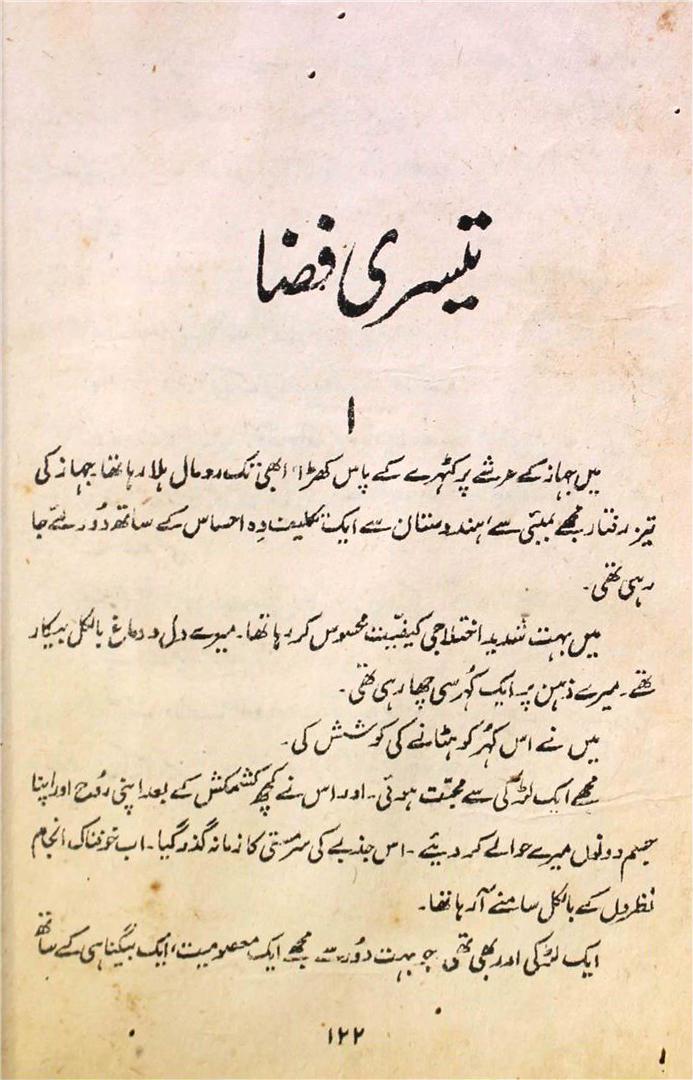 تیسری فضا
۱
میں جہاز کے عرشے پر کٹہرے کے پاس کھڑا، ابھی تک رومال ہلا رہا تھا۔ جہاز کی
تیز رفتار مجھے بمبئی سے، ہندوستان سے ایک تکلیف دہ احساس کے ساتھ دُور لئے جا
رہی تھی۔
میں بہت شدید اختلاجی کیفیّت محسوس کر رہا تھا۔ میرے دل و دماغ بالکل بیکار
تھے۔ میرے ذہن پر ایک کُہر سی چھا رہی تھی۔
میں نے اس کُہر کو ہٹانے کی کوشش کی۔
مجھے ایک لڑکی سے محبّت ہوئی۔ اور اس نے کچھ کشمکش کے بعد اپنی رُوح اور اپنا
جسم دونوں میرے حوالے کر دیئے۔ اس جذبے کی سرمستی کا زمانہ گذر گیا۔ اب خوفناک انجام
نظر دل کے بالکل سامنے آ رہا تھا۔
ایک لڑکی اور بھی تھی جو بہت دُور سے مجھے ایک معصومیت، ایک بیگناہی کے ساتھ
۱۲۲